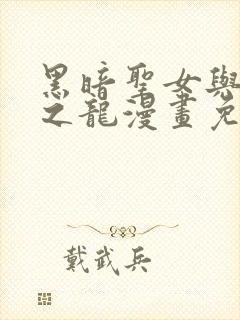 黑暗聖女與
之龍漫畫免
戴武兵